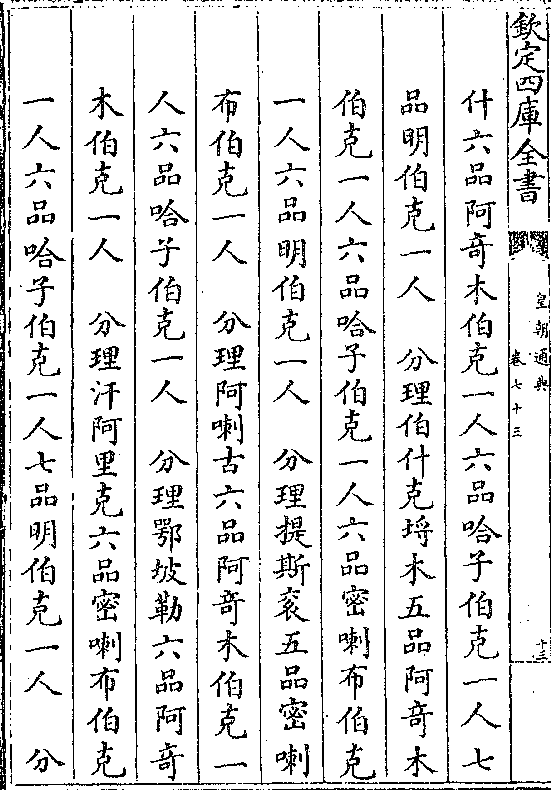 欽定四庫全書
皇朝通典
卷七十三
十三
什六品阿奇木伯克一人六品哈子伯克一人七
品明伯克一人　分理伯什克埓木五品阿奇木
伯克一人六品哈子伯克一人六品密喇布伯克
一人六品明伯克一人　分理提斯衮五品密喇
布伯克一人　分理阿喇古六品阿奇木伯克一
人六品哈子伯克一人　分理鄂坡勒六品阿奇
木伯克一人　分理汗阿里克六品密喇布伯克
一人六品哈子伯克一人七品明伯克一人　分